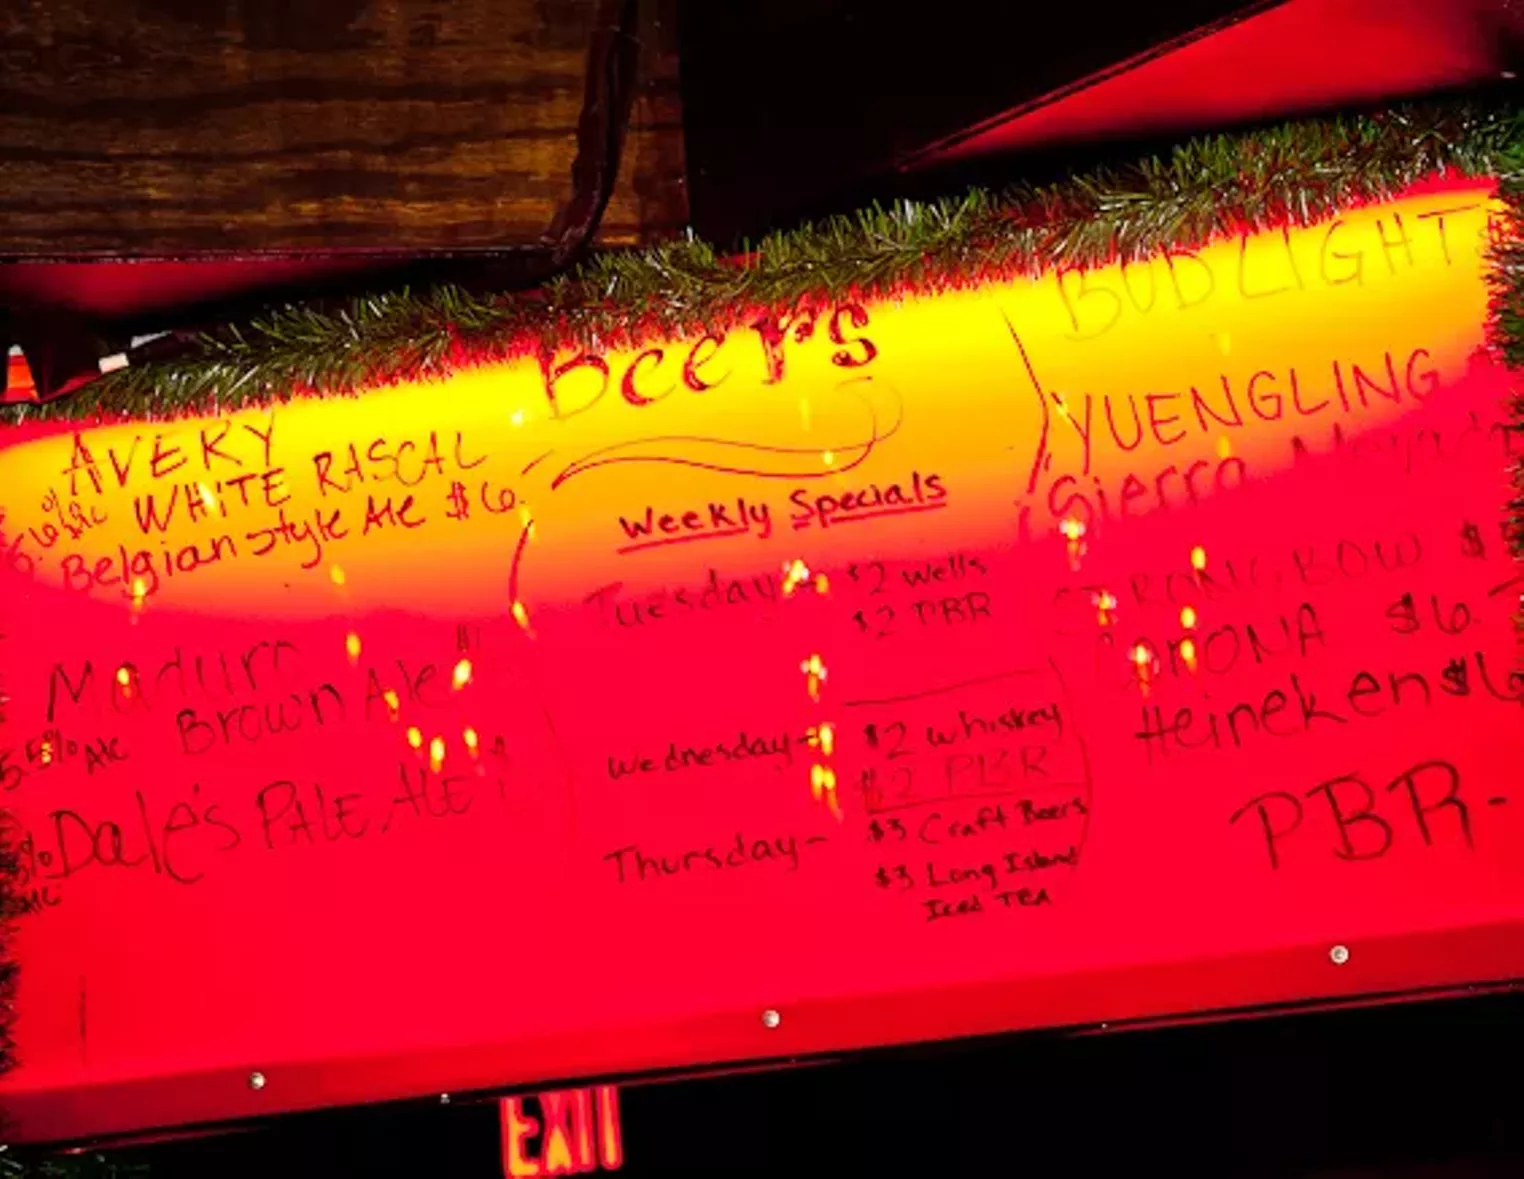 Beers
AVERY
5.6% Alc WHITE RASCAL
Belgian style Ale $6.
Maduro
Brown Ale
5.5% Alc
Dale's PALE Ale
Weekly Specials
Tuesday - $2 wells
$2 PBR
Wednesday - $2 whiskey
$2 PBR
Thursday - $3 Craft Beers
$3 Long Island
Iced TEA
BUD LIGHT
YUENGLING
Sierra Nevada
STRONGBOW $
CORONA $6.
Heineken $6
PBR-
EXIT